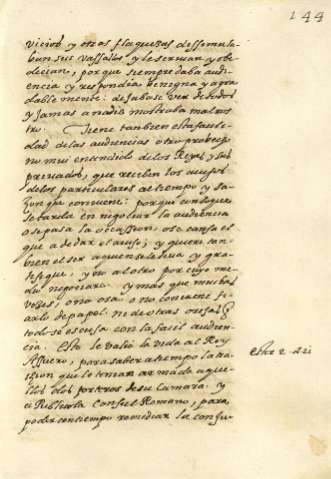 144
vicios y otras flaquezas dissimula-
ban sus vassalos y le servian y obe-
decian, porque siempre daba audi-
encia y respondia benigna y agra-
dablemente: dejabase ver de todos
y jamas a nadie mostraba mal ros-
tro. Tiene tambien esta facili-
dad de las audiencias otro probecho
no mui entendido de los Reyes y sus
privados, que reciben los avisos
de los particulares al tiempo y sa-
zon que conviene: porque con la que
se tarda en negociar la audiencia
o se pasa la occassion, o se cansa el
que a de dar el aviso; y quiere tan-
bien el ser a quien se le deva y gra-
tifique, y no al otro por cuyo me-
dio negociara. y mas que muchas
vezes, o no osa, o no conviene fi-
arlo de papel, ni de otras orejas
todo se escusa con la facil audien-
cia. Esto le valio la vida al Rey
Assuero, para saber a tiempo la tra-
icion que le tenian armada aque-
llos dos porteros de su camara. y
a Publicola Consul Romano, para
poder con tiempo remediar la conju-
ester 2. 21